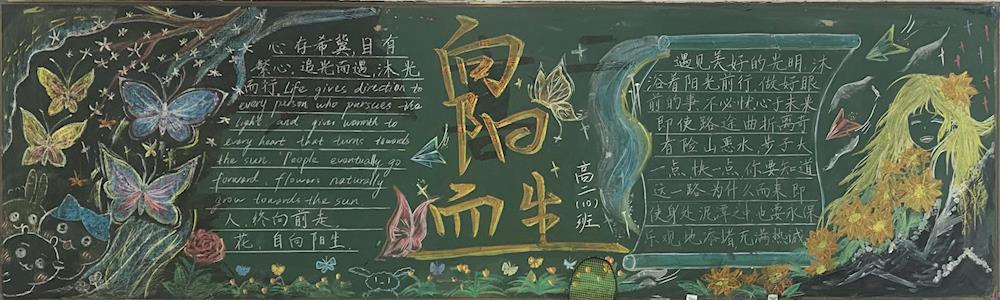 心存希冀,自有
繁心,追光而遇,沐光
而行.Life gives direction to
every person who pursues the
light and gives warmth to
every heart that turns towards
the sun. People eventually go
forward, flowers naturally
grow towards the sun
人,终向前走
花,自向阳生.
向阳
而生
高二(10)班
遇见美好的光明,沐
浴着阳光前行,做好眼
前的事不必忧心于未来
即使路途曲折离奇
有险山恶水,步子大
一点,快一点,你要知道
这一路为什么而来即
使身处泥泞之中也要永保
乐观地 充满热诚